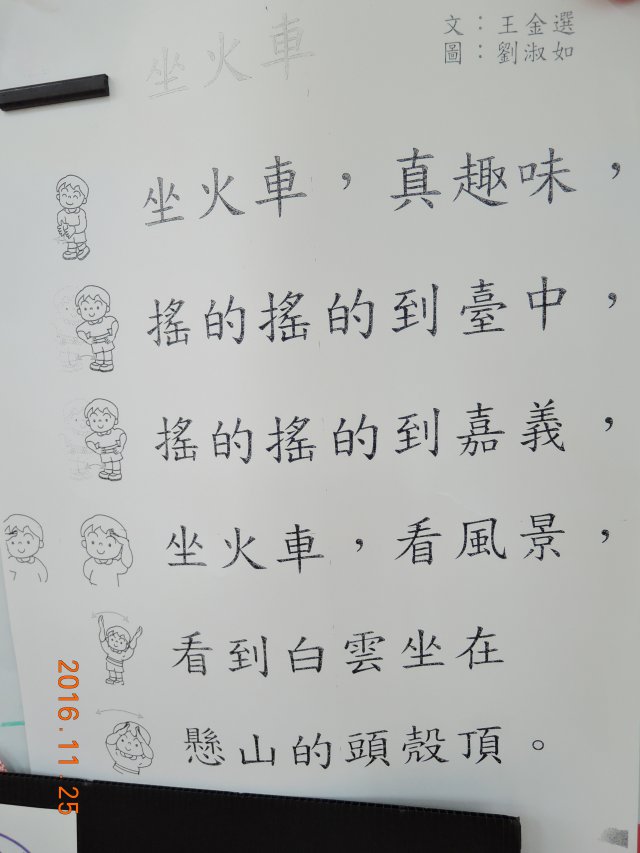 坐火車
文：王金選
圖：劉淑如
坐火車，真趣味，
搖的搖的到臺中，
搖的搖的到嘉義，
坐火車，看風景，
看到白雲坐在
懸山的頭殼頂。
2016.11.25